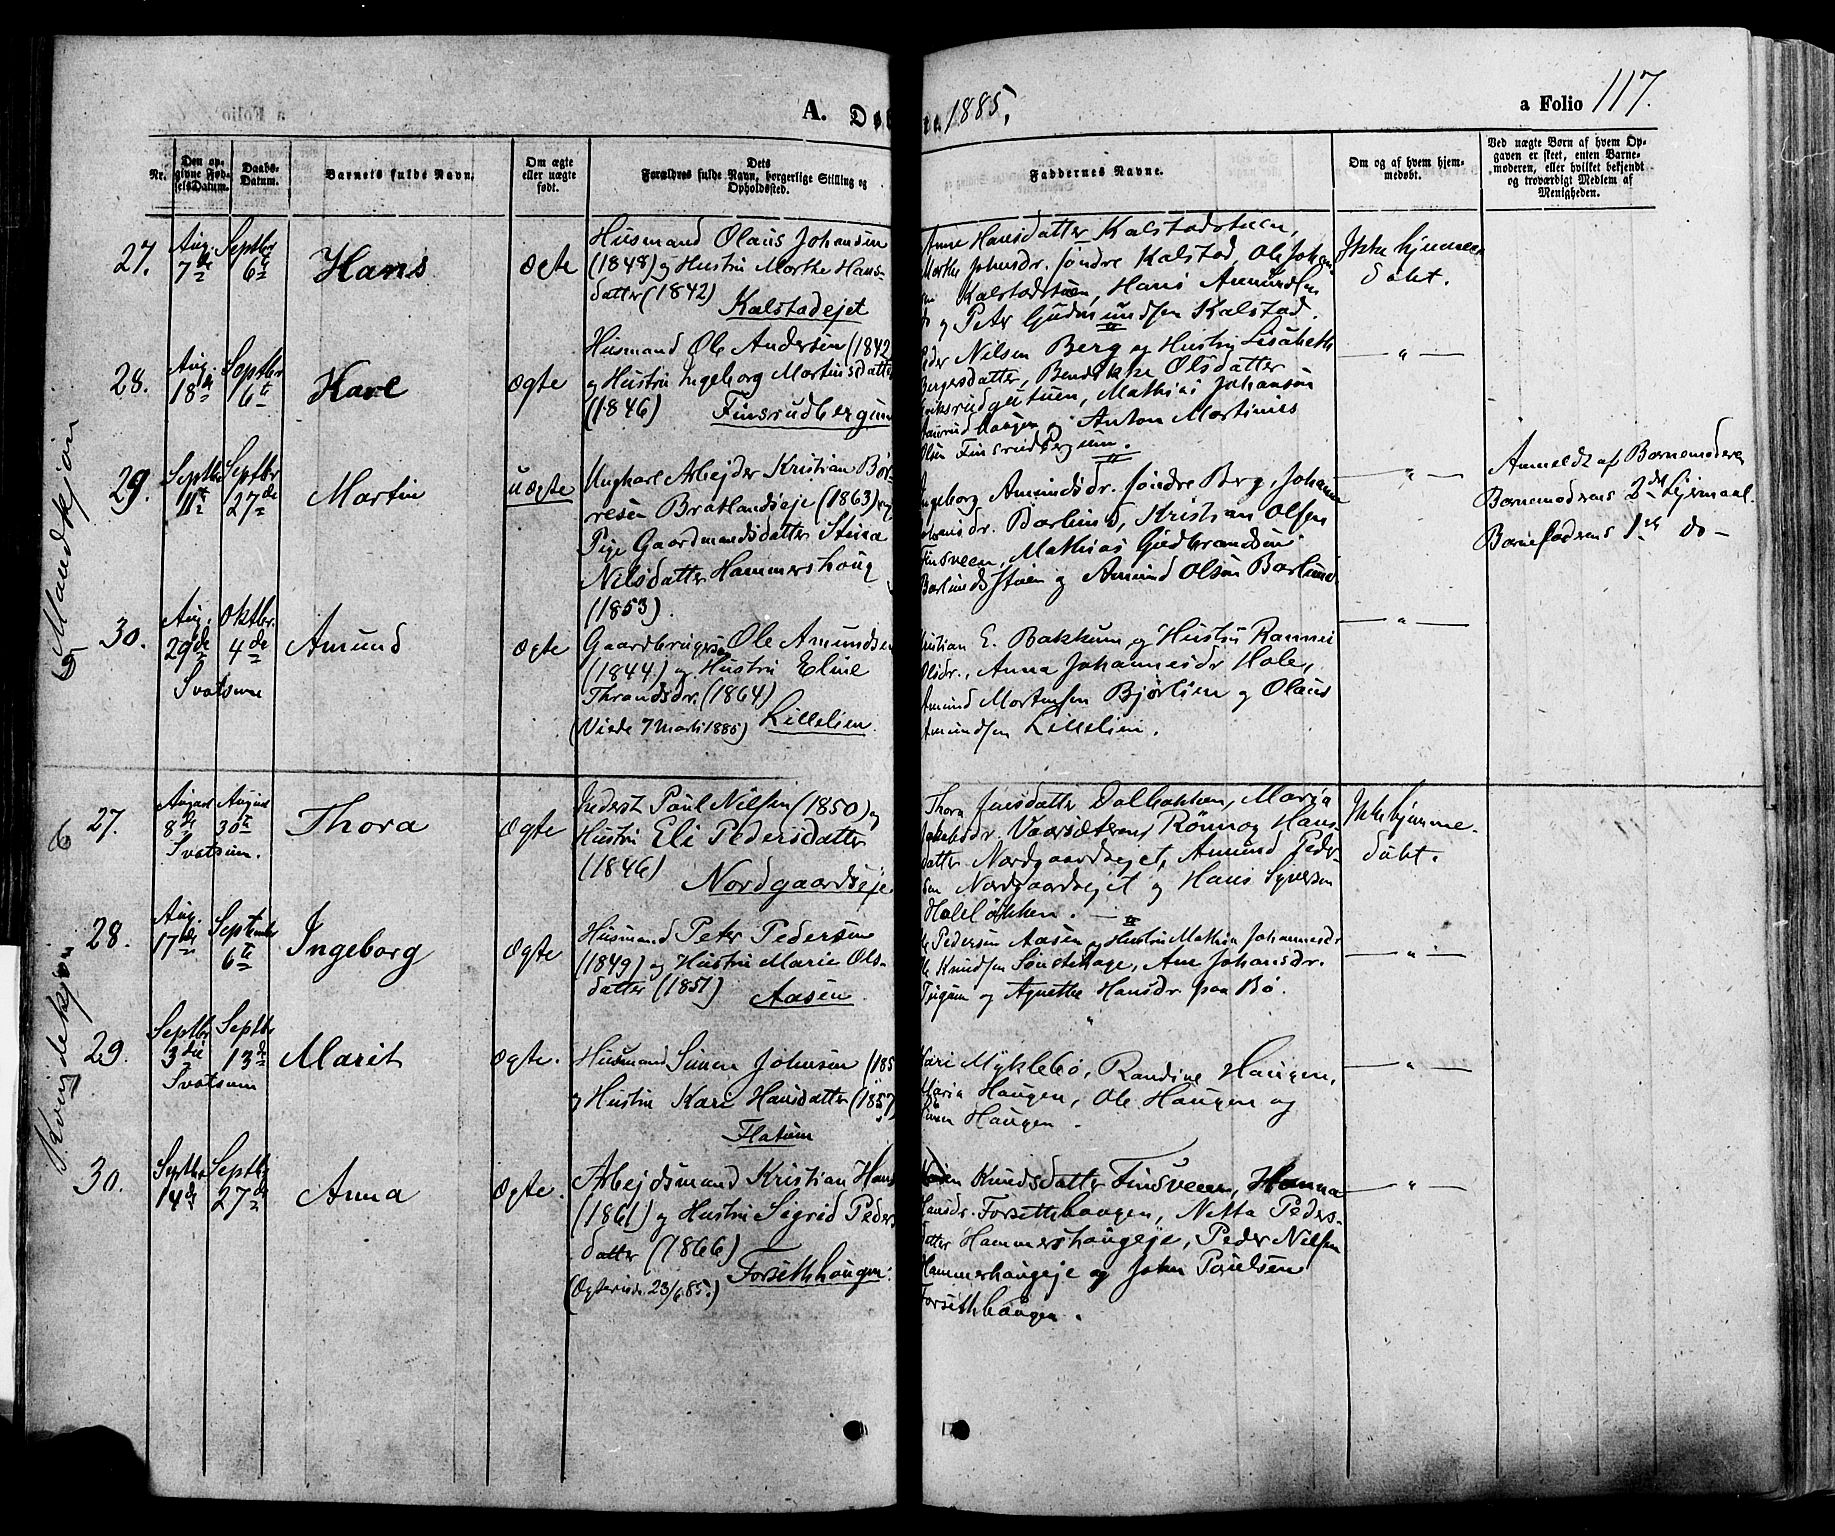 A. Døbte 1885,
a Folio 117.
Nr.
Den opgivne FødselsDatum.
Daabs-Datum.
Barnets fulde Navn.
Om ægte eller uægte født.
Dets Forældres fulde Navn, borgerlige Stilling og Opholdssted.
Faddernes Navne.
Om og af hvem hjemmedøbt.
Ved uægte Børn af hvem Opgaven er skeet, enten Barnemoderen, eller hvilket bekjendt og troværdigt Medlem af Menigheden.
Mandkjøn
27.
Aug. 7de
Septbr 6te
Hans
Ægte
Husmand Olaus Johansen
(1848) og Hustru Marthe Hans-
datter (1842)
Kalstadejet
Anne Hansdatter Kalstadstuen,
Marthe Johnsdr. søndre Kalstad, Ole Johan-
sen Kalstadstuen, Hans Amundsen
og Peter Gudmundsen Kalstad.
Ikke hjemme
døbt.
28.
Aug. 18de
Septbr 6te
Karl
Ægte
Husmand Ole Andersen (1842
og Hustru Ingeborg Martinsdatter
(1846) Finsrudbergum
Peder Nilsen Berg og Hustru Lisabeth
Bergersdatter, Bendikke Olsdatter
Mathias Johansen
haugen og Anton Martinius
Olsen Finsrudbergum.
— " —
29.
Septbr 11te
Septbr 27de
Martin
uægte
Ungkarl Arbejder Kristian Bør-
resen Bratlandseje (1863) og
Pige Gaardmandsdatter Stina
Nilsdatter Hammershoug
(1853).
Ingeborg Amundsdr. søndre Berg, Johanne
Barlund, Kristian Olsen
Finsveen, Mathias Gudbrandsen
Barlundsstuen og Amund Olsen Barlund
— " —
Anmeldt af Barnemoderen
Barnemoderens 2det Lejermaal
Barnefaderens 1ste do —
30.
Aug. 29de
Oktbr. 4de
Svatsum
Amund
Ægte
Gaardbruger Ole Amundsen
(1844) og Hustru Eline
Thrandsdr. (1864)
(Viede 7 Marts 1885) Lillelien
Kristian E. Bakkum og Hustru Rannei
Olsdr., Anna Johannesdr Hole,
Amund Mortensen Bjørlien og Olaus
Amundsen Lillelien.
— " —
Kvindekjøn
27.
August 8de
August 30te
Svatsum.
Thora
Ægte
Inderst Paul Nilsen (1850) og
Hustru Eli Pedersdatter
(1846)
Nordgaardseje
Thora Jensdatter Dalbakken, Maria
Jakobsdr. Vaarsæteren, Rønnog Hans-
datter Nordgaardsejet, Amund Peder-
sen Nordgaardsejet og Hans Syversen
Holeløkken.
Ikke hjemme-
døbt.
28.
Aug. 17de
September 6te
Ingeborg
Ægte
Husmand Peter Pedersen
(1849) og Hustru Marie Ols-
datter (1851) Aasen
Ole Pedersen Aasen og Hustru Mathia Johannesdr
Ole Knudsen Sønstehage, Ane Johansdr.
og Agnethe Hansdr paa Bø.
— " —
29.
Septbr 3die
Septbr 13de
Svatsum
Marit
Ægte.
Husmand Simen Johnsen (185
og Hustru Kari Hansdatter (1857)
Flatum
Kari Myklebø, Randine Haugen,
Maria Haugen, Ole Haugen og
Haugen.
— " —
30.
Septbr 14de
Septbr 27de
Anna
Ægte.
Arbejdsmand Kristian Hans
(1861) og Hustru Sigrid Peders
datter (1866)
(Ægteviede 23/6 85.) Forsethhaugen.
Karen Knudsdatter Finsveen, Hanna
Hansdr. Forsethhaugen, Netta Peders-
datter Hammershaugeje, Peder Nilsen
Hammershaugeje og John Paulsen
Forsethhaugen.
— " —